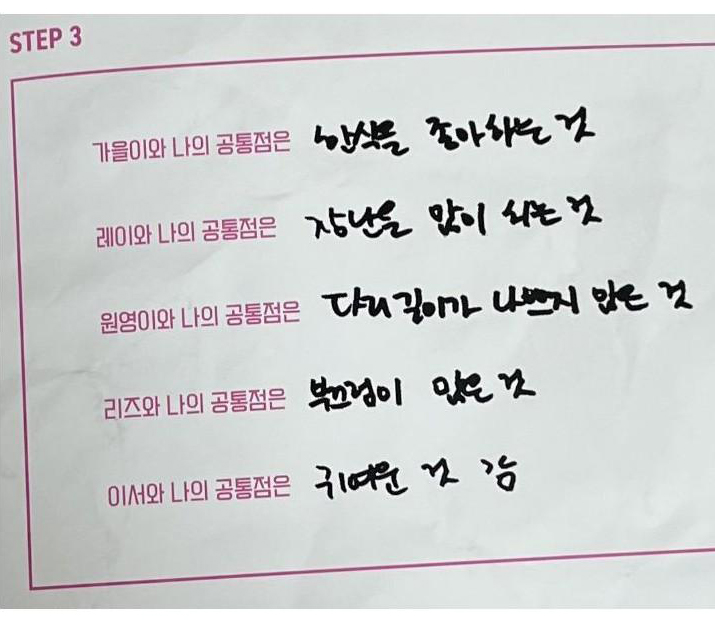 STEP 3
가을이와 나의 공통점은 한식을 좋아하는 것
레이와 나의 공통점은 장난을 많이 치는 것
원영이와 나의 공통점은 다리 길이가 나쁘지 않은 것
리즈와 나의 공통점은 부끄럼이 많은 것
이서와 나의 공통점은 귀여운 것 같음